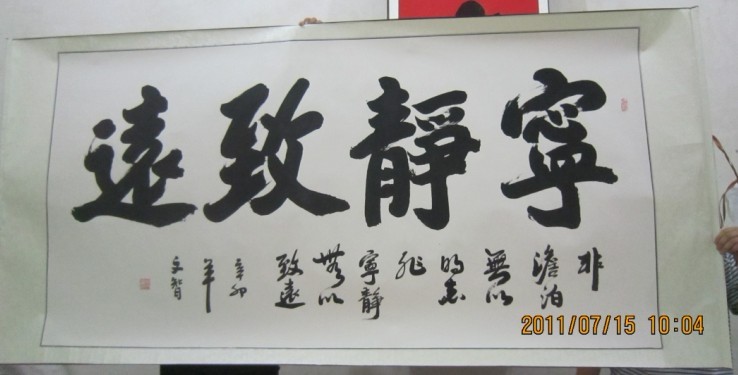 寧靜致遠
非
澹泊
無以
明志
非
寧靜
無以
致遠
辛卯
年
文智
2011/07/15 10:04